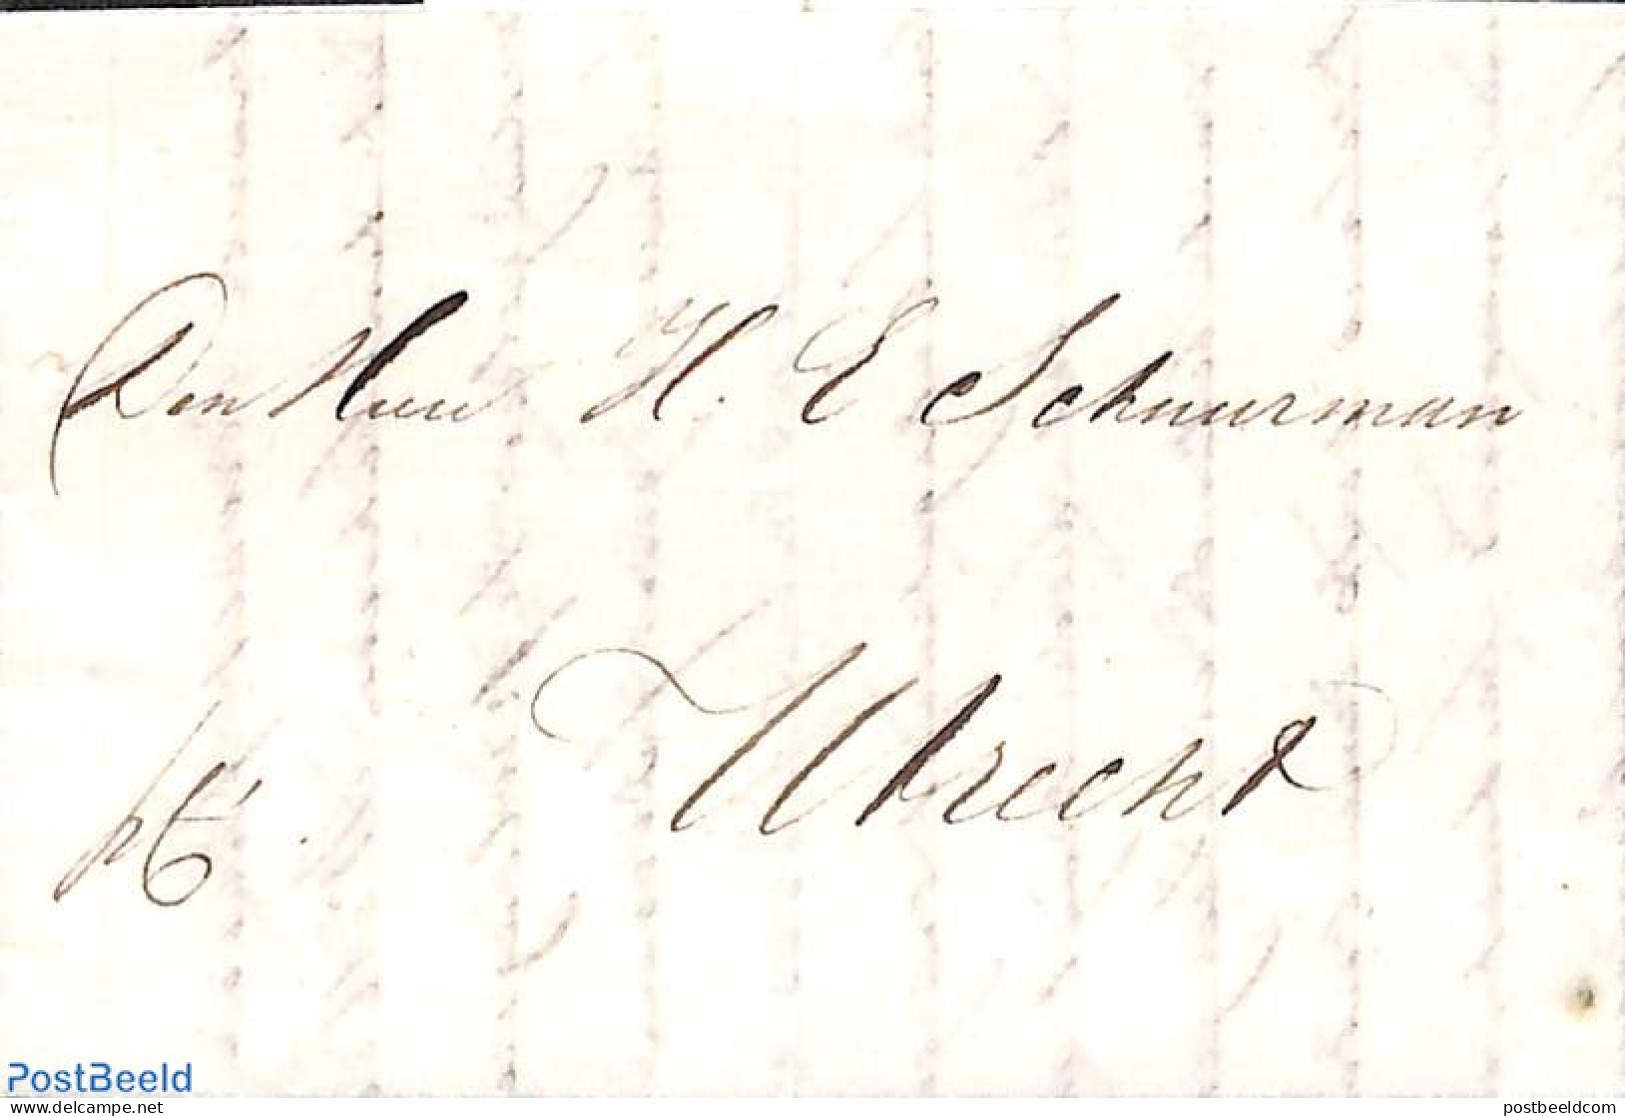 Den Heer H. E Schuurman
Utrecht
PostBeeld
www.postbeeld.com
postbeeldcom